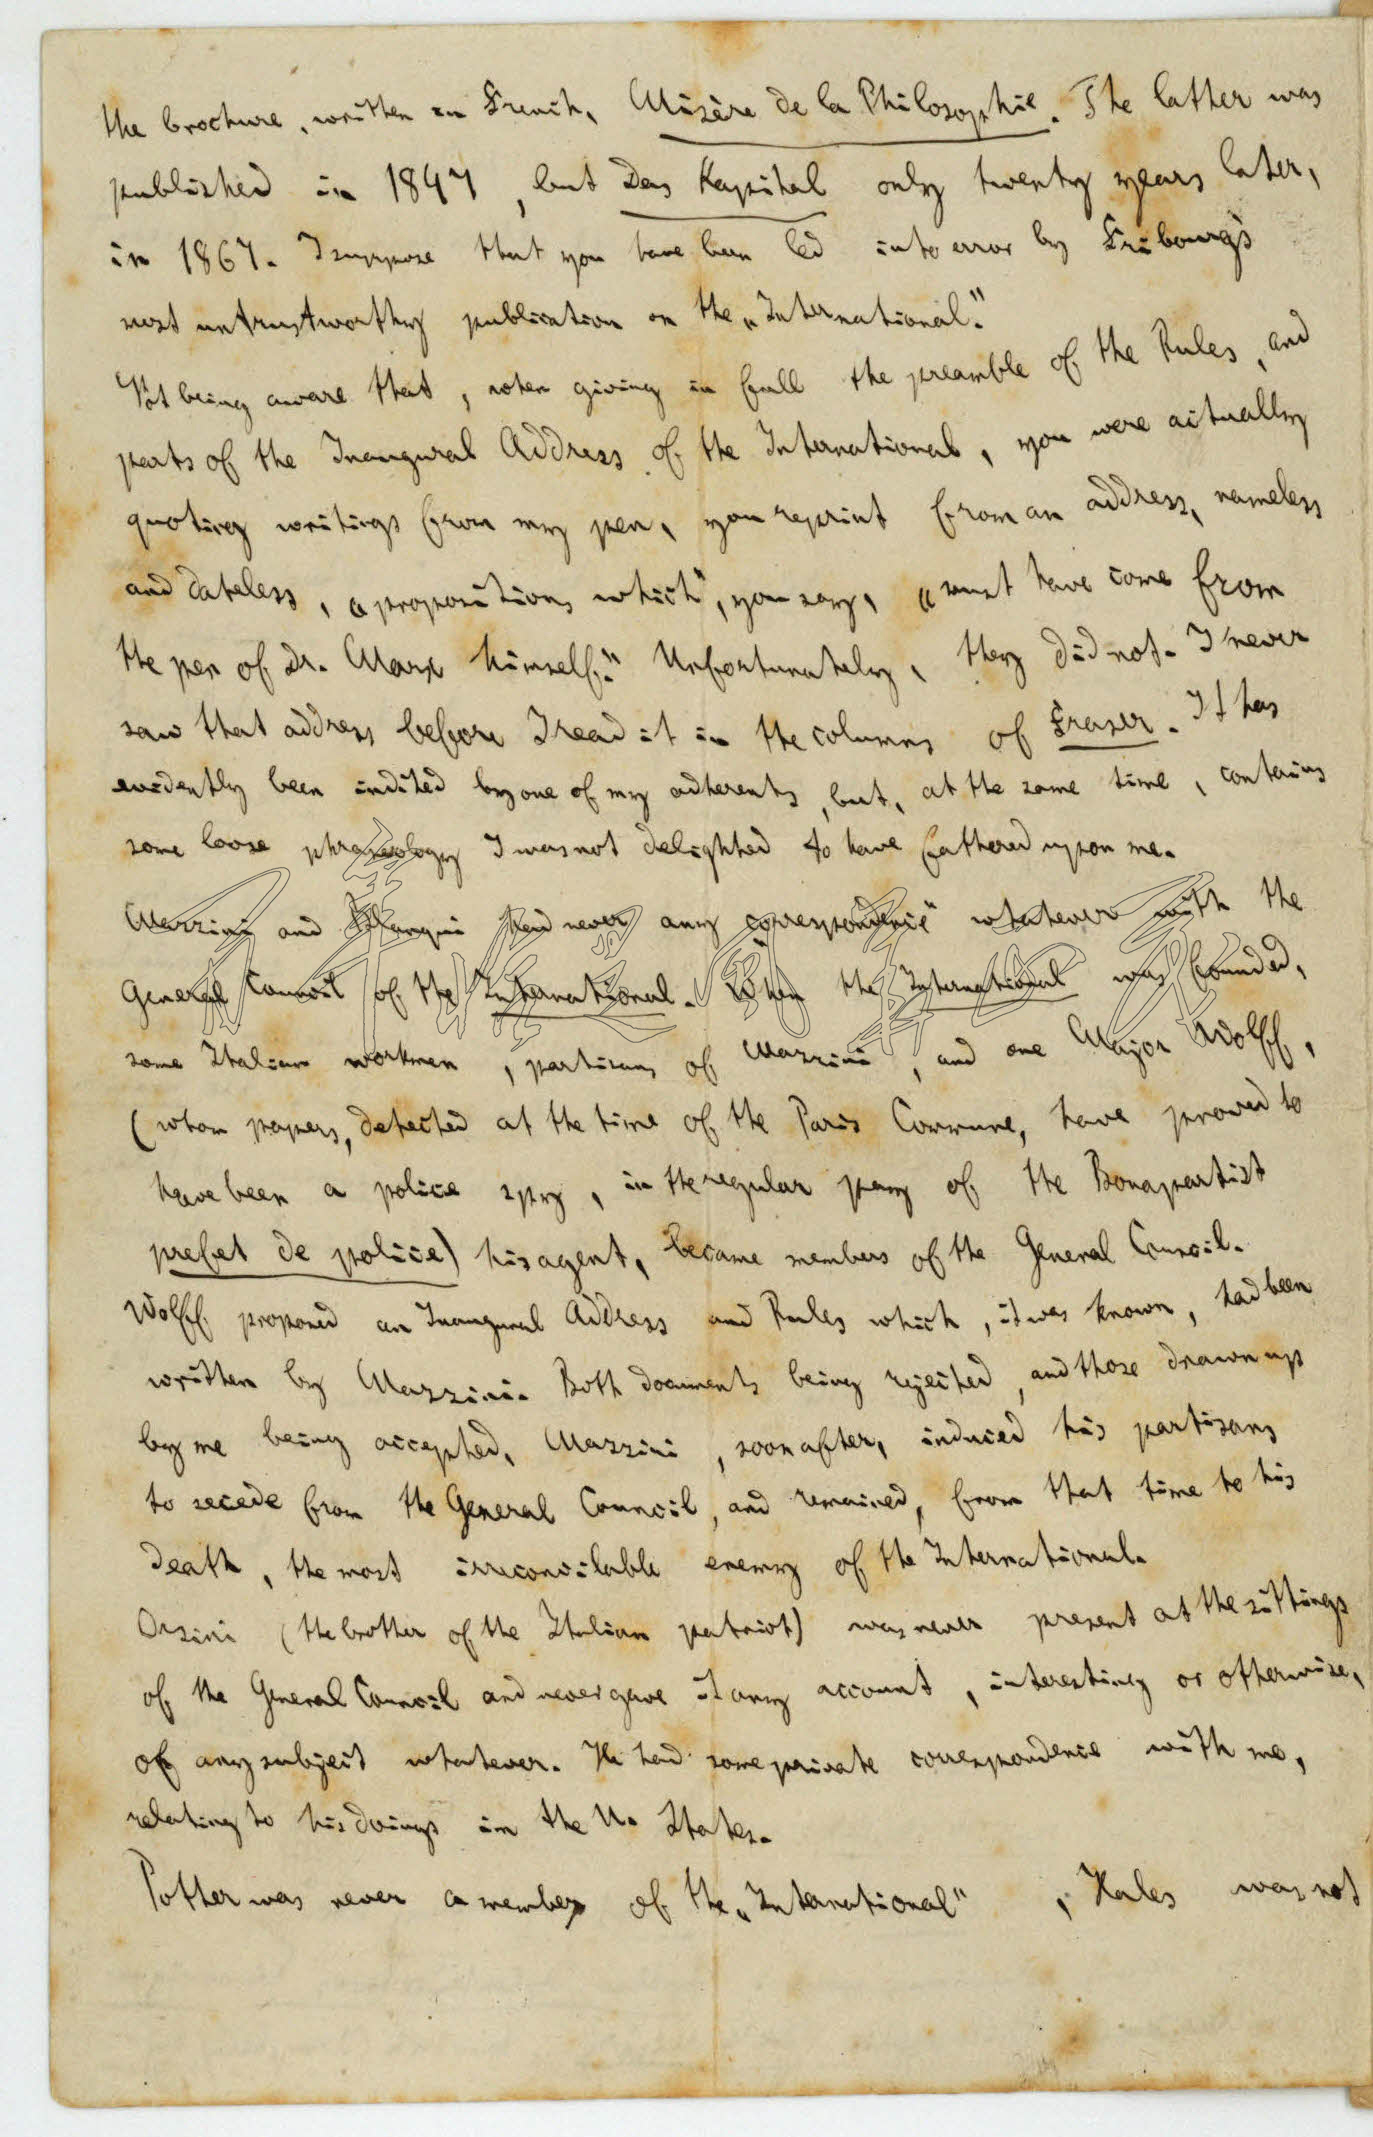 the brochure, written in French, Misère de la Philosophie. The latter was
published in 1847, but Das Kapital only twenty years later,
in 1867. I suppose that you have been led into error by Fribourg's
most untrustworthy publication on the „International."
Not being aware that, when giving in full the preamble of the Rules, and
parts of the Inaugural Address of the International, you were actually
quoting writings from my pen, you reprint from an address, nameless
and dateless, „propositions which", you say, „must have come from
the pen of Dr. Marx himself." Unfortunately, they did not. I never
saw that address before I read it in the columns of Fraser. It has
evidently been indited by one of my adherents, but, at the same time, contains
some loose phraseology I was not delighted to have fathered upon me.
Mazzini and Blanqui had never any correspondence whatever with the
General Council of the International. When the International was founded,
some Italian workmen, partisans of Mazzini, and one Major Wolff,
(whom papers, detected at the time of the Paris Commune, have proved to
have been a police spy, in the regular pay of the Bonapartist
prefet de police) his agent, became members of the General Council.
Wolff proposed an Inaugural Address and Rules which, it was known, had been
written by Mazzini. Both documents being rejected, and those drawn up
by me being accepted, Mazzini, soon after, induced his partisans
to secede from the General Council, and remained, from that time to his
death, the most irreconcilable enemy of the International.
Orsini (the brother of the Italian patriot) was never present at the sittings
of the General Council and never gave it any account, interesting or otherwise,
of any subject whatever. He had some private correspondence with me,
relating to his doings in the U. States.
Potter was never a member of the „International", Hales was not